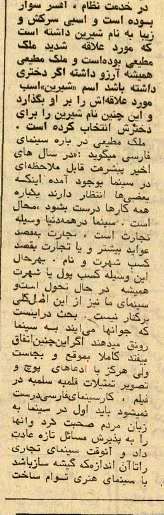 در خدمت نظام ، افسر سوار
بوده است و اسبی سرکش و
زیبا به نام شیرین داشته است
که مورد علاقه شدید ملک
مطیعی بوده‌است و ملک مطیعی
همیشه آرزو داشته اگر دختری
داشته باشد اسم «شیرین»اسب
مورد علاقه‌اش را بر او بگذارد
و این چنین نام شیرین را برای
دخترش انتخاب کرده است .
ملک مطیعی در باره سینمای
فارسی میگوید :«در سال های
اخیر پیشرفت قابل ملاحظه‌ای
در سینما بوجود آمده اینکه
بعضی‌ها انتظار دارند یکباره
همه کارها درست بشود ،محال
است . سینما در همه‌دنیا وسیله
تجارت است ، تجارت بمقصد
عواید بیشتر و یا تجارت بقصد
کسب شهرت و نام . بهرحال
این وسیله کسب پول یا شهرت
همیشه در حال تحول است‌و
سینمای ما نیز از این اصل‌کلی
برکنار نیست. بحث دراینست
که جوانها می‌آیند به سینما
رونق میدهند اگراین‌چنین‌اتفاق
بیفتد کاملا بموقع و بجاست
ولی هرگز با ادعاهای پوچ و
تصویر تمثیلات قلمبه سلمبه در
فیلم ، کارسینمای‌فارسی‌درست
نمیشود باید اول در سینما به
زبان مردم صحبت کرد وآنها
را به پذیرش مسائل تازه عادت
داد و آنوقت سینمای تجارتی
راتاآن اندازه‌که گیشه سازباشد
با سینمای هنری توام ساخت